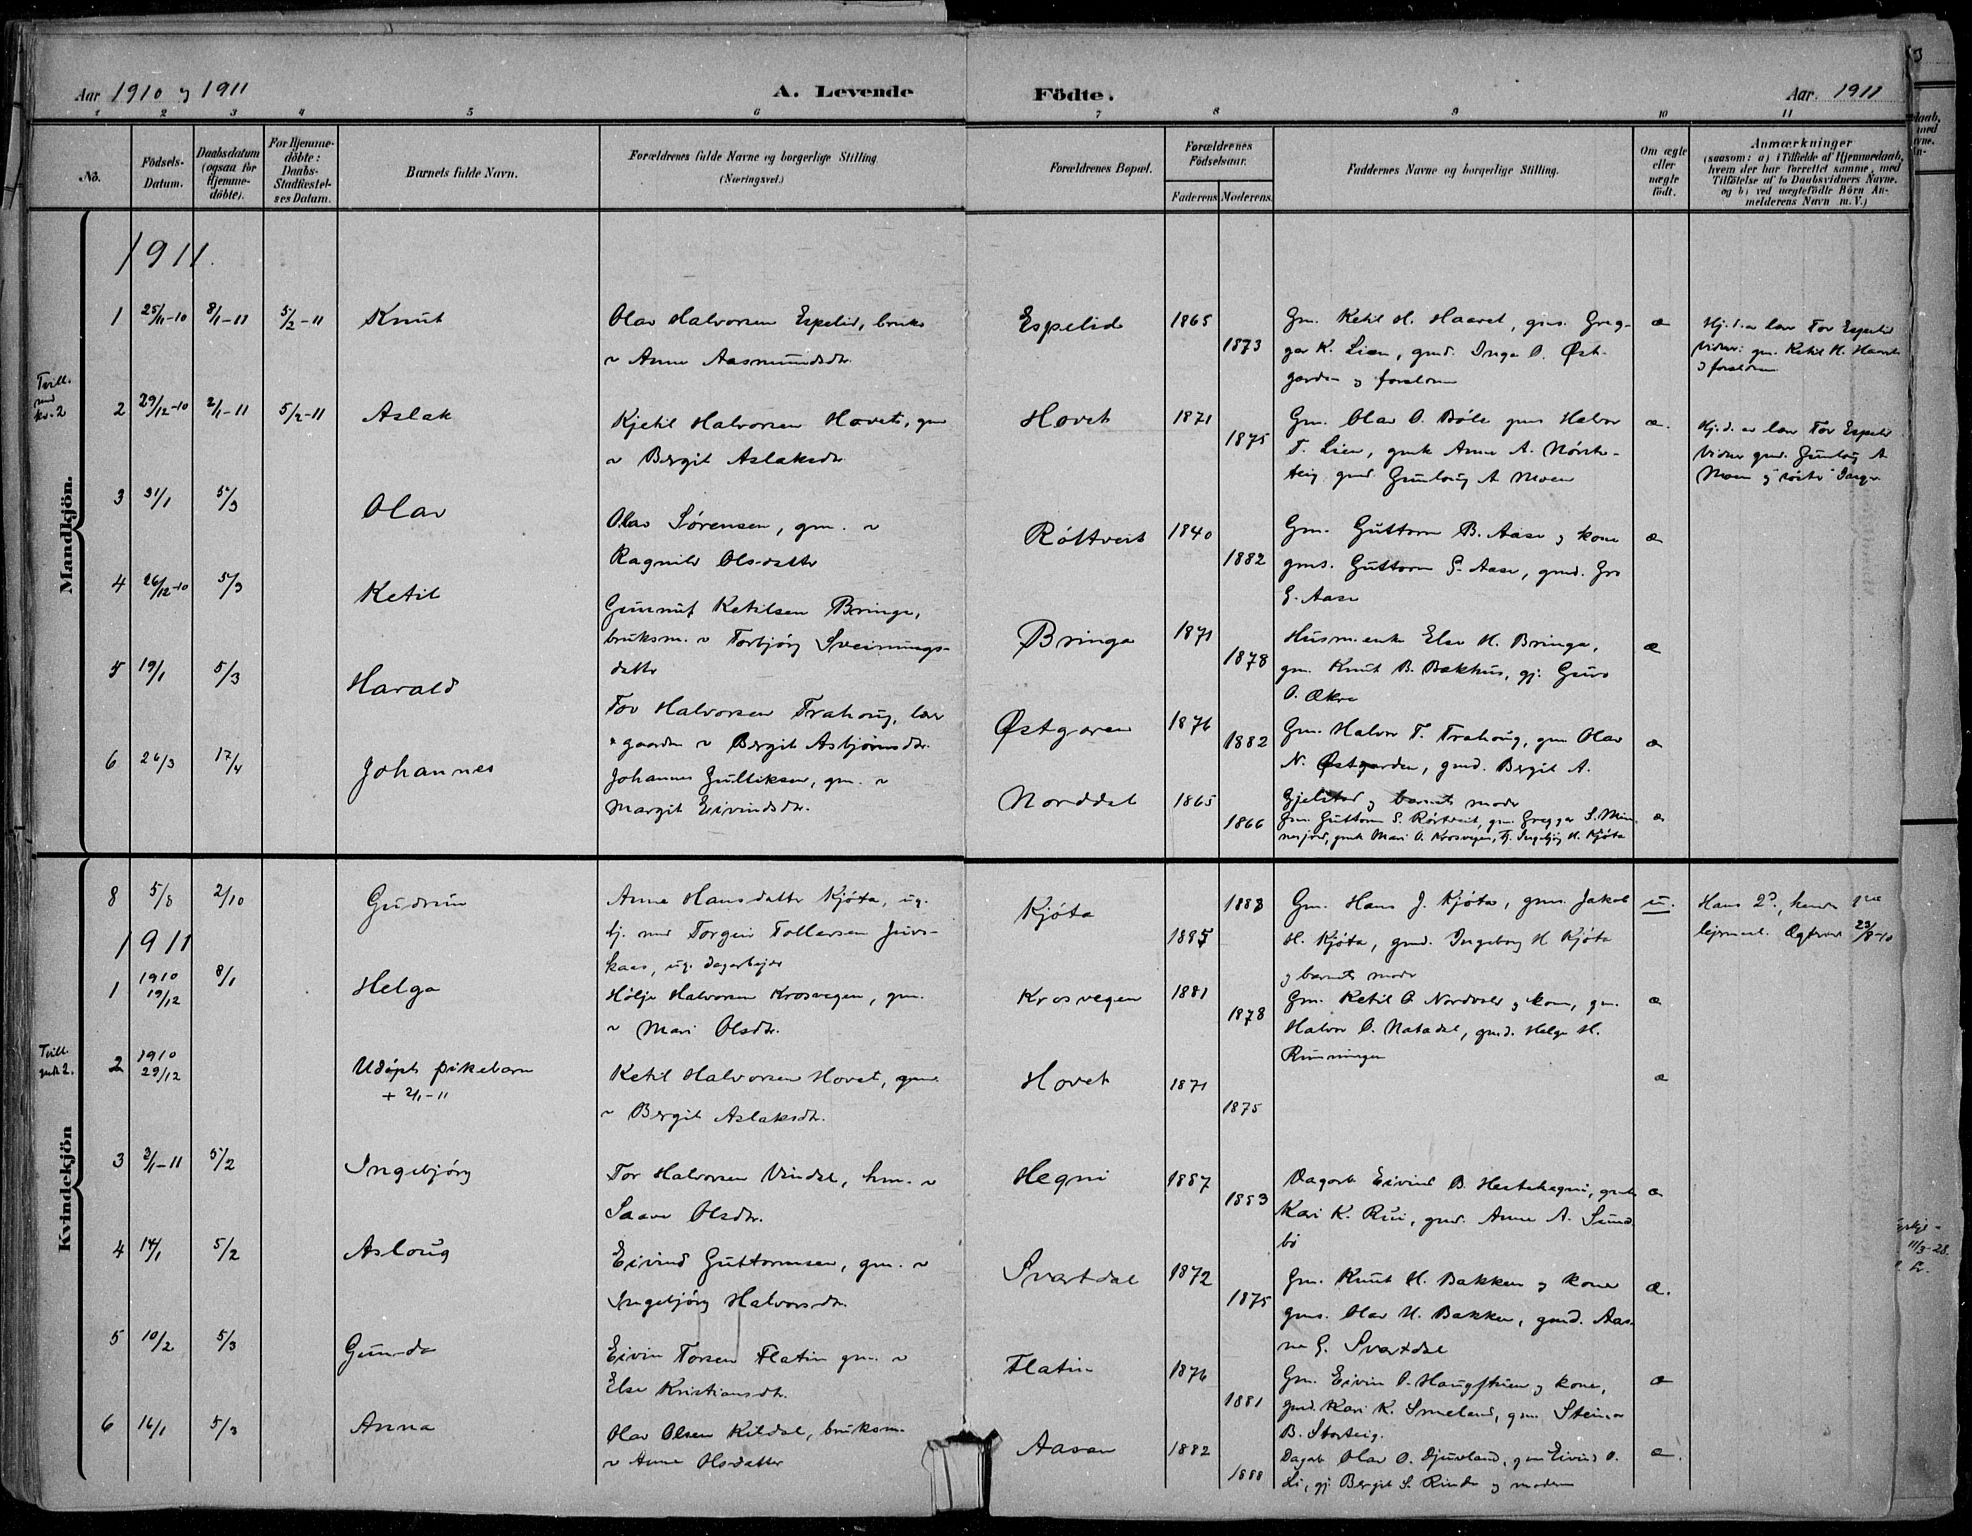 Aar 1910 og 1911
A. Levende
Födte.
Aar. 1911
1 2 3 4 5 6 7 8 9 10 11
No.
Födsels-
Datum.
Daabsdatum
(ogsaa for
Hjemme-
döbte).
For Hjemme-
döbte:
Daabs-
Stadfæstel-
ses Datum.
Barnets fulde Navn.
Forældrenes fulde Navne og borgerlige Stilling.
(Næringsvei.)
Forældrenes Bopæl.
Forældrenes
Födselsaar.
Faderens
Moderens.
Faddernes Navne og borgerlige Stilling.
Om ægte
eller
uægte
födt.
Anmærkninger
(saasom: a) i Tilfælde af Hjemmedaab,
hvem der har forrettet samme, med
Tilföielse af to Daabsvidners Navne,
og b) ved uægtefödte Börn An-
melderens Navn m. V.)
Mandkjön.
1911.
1 25/11-10 8/1-11 5/2-11 Knut
Olav Halvorsen Espelid, bruks
Anne Aasmundsdtr.
Espelid 1865 1873
Gm. Ketil H. Haavet, gms. Greg-
gar K. Lien, gmd. Inga O. Øst-
garden og forældrene
æ
Hj.d. av lær Tor Espelid
Vidner: gm. Ketil H. Haavet
og forældrene
Tvill.
med
kv. 2
2 29/12-10 2/1-11 5/2-11 Aslak
Kjetil Halvorsen Hovet, gm
Bergit Aslaksdtr.
Hovet 1871 1875
Gm. Olav O. Bøle gms Halvor
T. Lien, gmk Anne A. Nørste-
teig gmd. Gunloug A Moen
æ.
Hj.d. av lær Tor Espelid
Vidner gmd. Gunloug A
Moen og
3 31/1 5/3 Olav
Olav Sørensen, gm.
Ragnild Olsdatter
Røltveit 1840 1882
Gm. Guttorm B. Aase og kone
gms. Guttorm G. Aase, gmd. Gro
G. Aase
æ
4 26/12-10 5/3 Ketil
Gunnuf Ketilsen Bringa,
bruksm. Torbjørg Sveinungs-
datter
Bringa 1871 1878
Husm.enke Else H. Bringa,
gm. Knut B. Bakhus, gj. Guro
O. Økre
æ
5 19/1 5/3 Harald
Tov Halvorsen Trahoug,
gaarden Bergit Asbjørnsdtr.
Østgaren 1876 1882
Gm. Halvor T. Trahoug, gm Olav
N. Østgarden, gmd. Bergit A.
Gjelstad og barnets moder
æ
6 26/3 17/4 Johannes
Johannes Gulliksen, gm.
Margit Eivindsdtr.
Norddal 1865 1866
Gm. Guttorm S. Røltveit, gm. Greggar S. Min-
nesjord, gmk Mari O. Krosvegen, Ingebjørg H. Kjøta
æ
Kvindekjön
8 5/8 2/10 Gudrun
Anne Hansdatter Kjøta, ug.
tj. med Torgeir Tollefsen Juvs-
kaas, ug. dagarbejder
Kjøta 1885 1883
Gm. Hans J. Kjøta, gms. Jakob
H. Kjøta, gmd. Ingeborg H Kjøta
og barnets moder
u.
Hans 2?, hendes
leiermaal. 23/8-10
1911
1 1910 19/12 8/1 Helga
Hølje Halvorsen Krosvegen, gm.
Mari Olsdtr.
Krosvegen 1881 1878
Gm. Ketil O Nordvald og kone, gm.
Halvor O. Natadal, gmd. Helge H.
Runningen
æ
Tvill.
gut 2.
2 1910 29/12
Udöpt pikebarn
+ 2/1-11
Ketil Halvorsen Hovet, gm.
Bergit Aslaksdtr.
Hovet 1871 1875
æ
3 2/1-11 5/2 Ingebjörg
Tor Halvorsen Vindal, hm.
Saave Olsdtr.
Hegni 1887 1883
Dagarb Eivind B. Hestehagni, gmk
Kari K. Rui, gmd. Anne A. Sund-
bö
æ
4 14/1 5/2 Asloug
Eivind Guttormsen, gm.
Ingebjörg Halvorsdtr.
Svartdal 1872 1875
Gm. Knut H. Bakken og kone
gms. Olav H. Bakken, gmd. Aas-
ne G. Svartdal
æ.
5 10/2 5/3 Gunda
Eivin Torsen Flatin gm.
Else Kristiansdtr.
Flatin 1876 1881
Gm. Eivin O. Haugstuen og kone,
gmd. Kari K. Smeland, gm. Steinar
B. Storteig.
æ
6 16/1 5/3 Anna
Olav Olsen Kildal, bruksm.
Anne Olsdatter
Aasan 1882 1888
Dagarb Olav O. Djuvland, gm Eivind O.
Li, gj. Bergit S. Rinde og moderen
æ.
11/3-28.